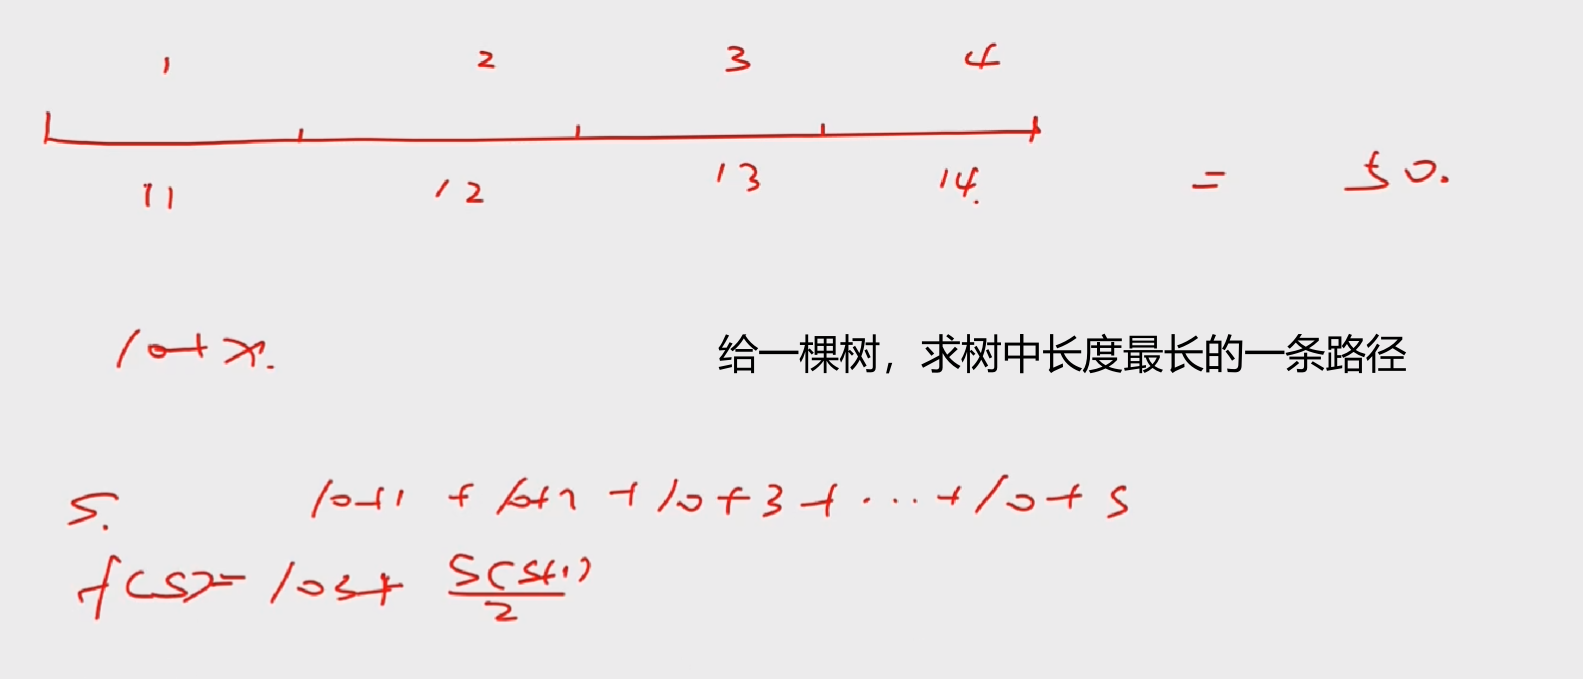 1 2 3 4
11 12 13 14. = 50.
10+x.
给一棵树，求树中长度最长的一条路径
S. 10+1 + 10+2 + 10+3+ ... +10+s
f(s)= 10s+ s(s+1)/2